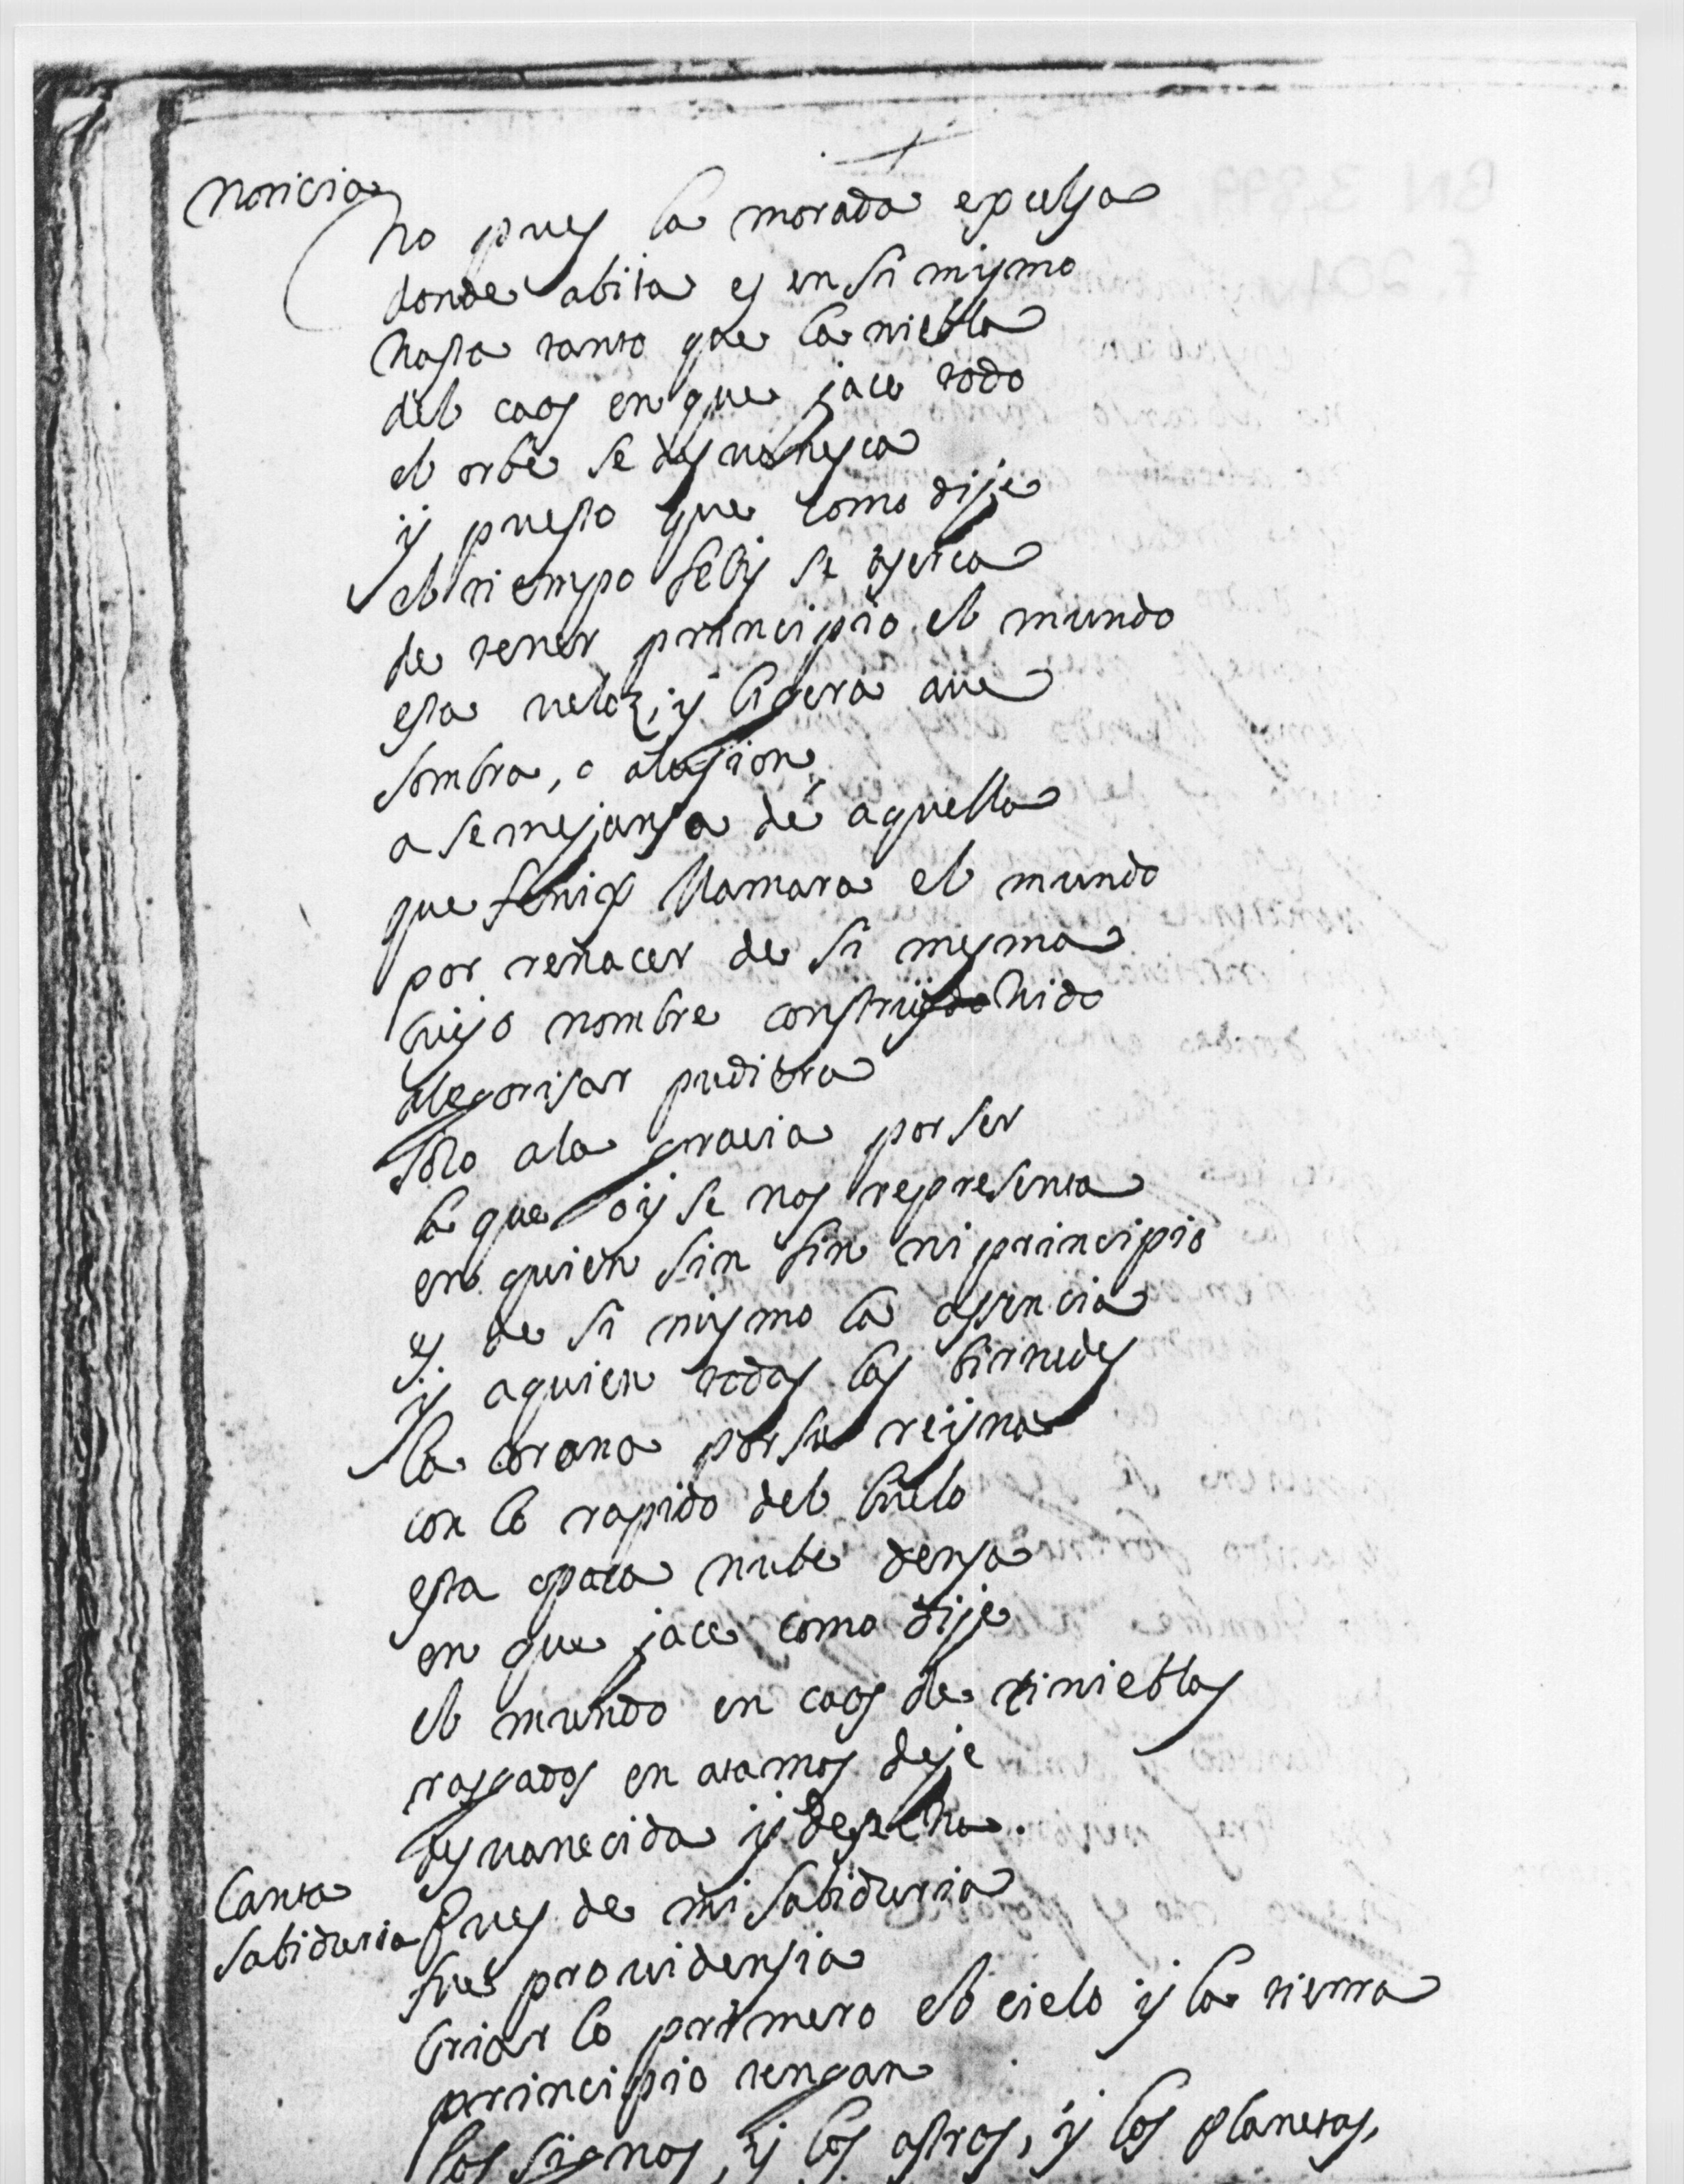 noticia
no pues la morada expulsa
donde abita es en si mismo
hasta tanto que la niebla
del caos en que jace todo
el orbe se desvanesca
y puesto que como dije
el tiempo felis se aserca
de tener principio el mundo
esta veloz, y ligera ave
sombra, o alusion,
a semejansa de aquella
que fenix llamara el mundo
por renacer de si mesma
cuyo nombre construydo hido
alegorisar pudiera
solo a la gracia por ser
la que oy se nos representa
en quien sin fin ni principio
es de si mismo la essencia
y a quien todas las birtudes
la corona por su reyna
con lo rapido del buelo
esta opaca nube densa
en que jace como dije
el mundo en caos de tinieblas
rasgados en atamos deje
desvanecida y desecha.
Canta
Sabiduria Pues de mi sabiduria
fue providensia
criar lo primero el cielo y la tierra
principio tengan
los signos, y los astros, y los planetas,